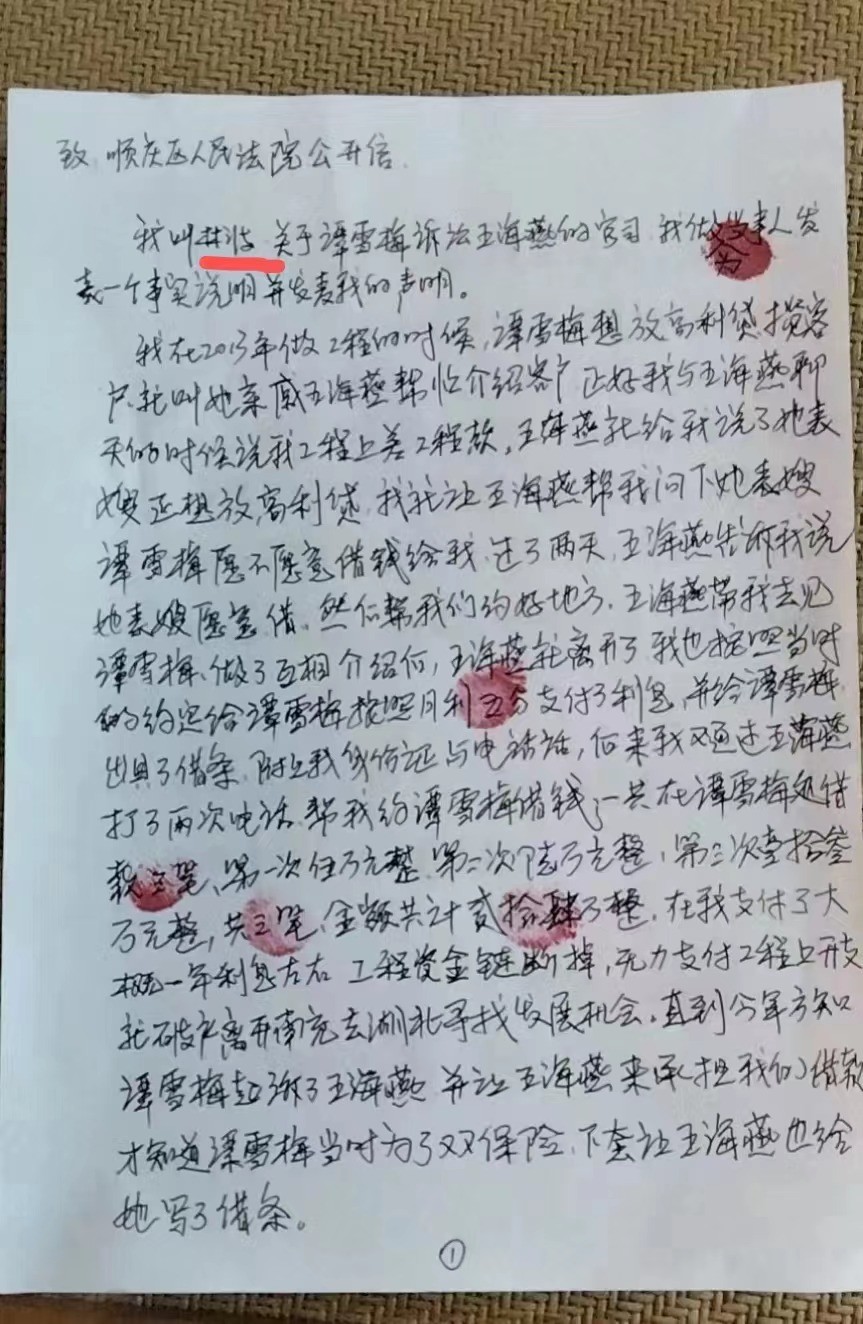 致 顺庆区人民法院公开信.
我叫林波 关于谭雪梅诉讼王海燕的官司 我做为当事人发
表一个事实说明并发表我的声明。
我在2013年做工程的时候,谭雪梅想放高利贷揽客
户.就叫她亲戚王海燕帮忙介绍客户 正好我与王海燕聊
天的时候说我工程上差工程款,王海燕就给我说了她表
嫂正想放高利贷,我就让王海燕帮我问下她表嫂
谭雪梅愿不愿意借钱给我.过了两天,王海燕告诉我说
她表嫂愿意借.然后帮我们约好地方.王海燕带我去见
谭雪梅.做了互相介绍后,王海燕就离开了 我也按照当时
的约定给谭雪梅按照月利五分支付了利息,并给谭雪梅
出具了借条.附上我身份证与电话话,后来我又通过王海燕
打了两次电话.帮我约谭雪梅借钱,一共在谭雪梅处借
款三笔、第一次伍万元整.第二次陆万元整,第三次壹拾叁
万元整,共三笔、金额共计贰拾肆万整.在我支付了大
概一年利息左右 工程资金链断掉,无力支付工程上开支
就破产离开南充去湖北寻找发展机会.直到今年方知
谭雪梅起诉了王海燕 并让王海燕来承担我的借款
才知道谭雪梅当时为了双保险、下套让王海燕也给
她写了借条。
①